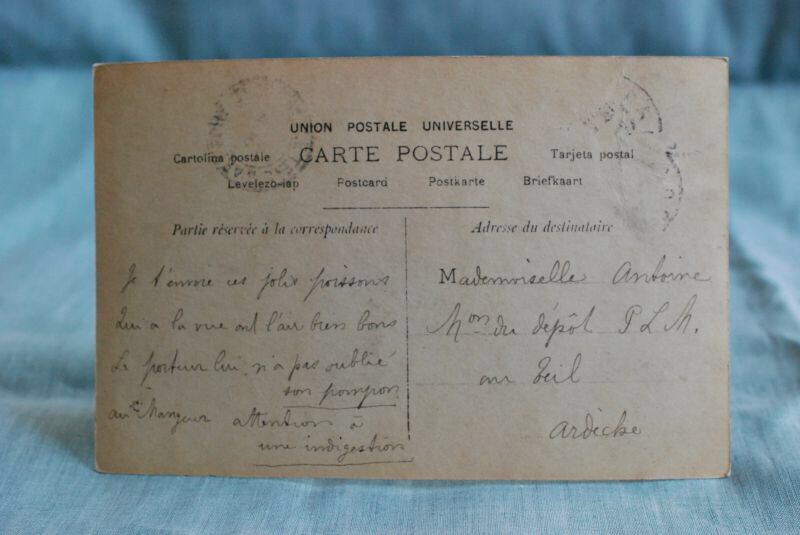 UNION POSTALE UNIVERSELLE
Cartolina postale CARTE POSTALE Tarjeta postal
Levelezö-lap Postcard Postkarte Briefkaart
Partie réservée à la correspondance
Je t'envoie ces jolis poissons
Qui à la vue ont l'air bien bons
Le porteur lui, n'a pas oublié
son pompon
Mangeur attention à
une indigestion
Adresse du destinataire
Mademoiselle Antoine
Mon du dépôt P L M.
au Teil
Ardèche